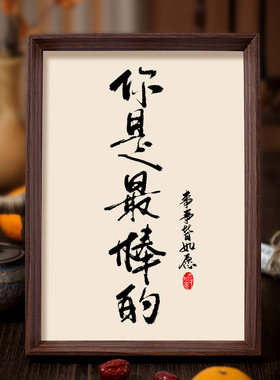 你是最棒的
事事皆如愿